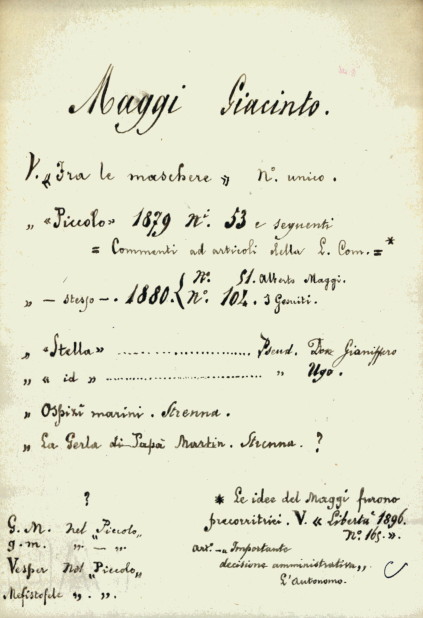 Maggi Giacinto.
V. "Fra le maschere" N.º unico.
„ «Piccolo» 1879 N.i 53 e seguenti
= Commenti ad articoli della L. Com. = *
N.º 51. Alberto Maggi.
„ – stesso –. 1880. { N.º 104. I Gesuiti.
„ «Stella» ........................ Pseud. Don Gianiffero
„ « id » ........................ „ Ugo.
„ Ospizi marini. Strenna.
„ La Gerla di Papà Martin. Strenna. ?
?
G. M. nel "Piccolo„
g. m. „ – „
Vesper nel „Piccolo„
Mefistofele „ . „ .
* Le idee del Maggi furono
precorritrici. V. « Libertà" 1896.
N.º 165. ».
Art.º – „ Importante
decisione amministrativa„.
L'Autonomo.